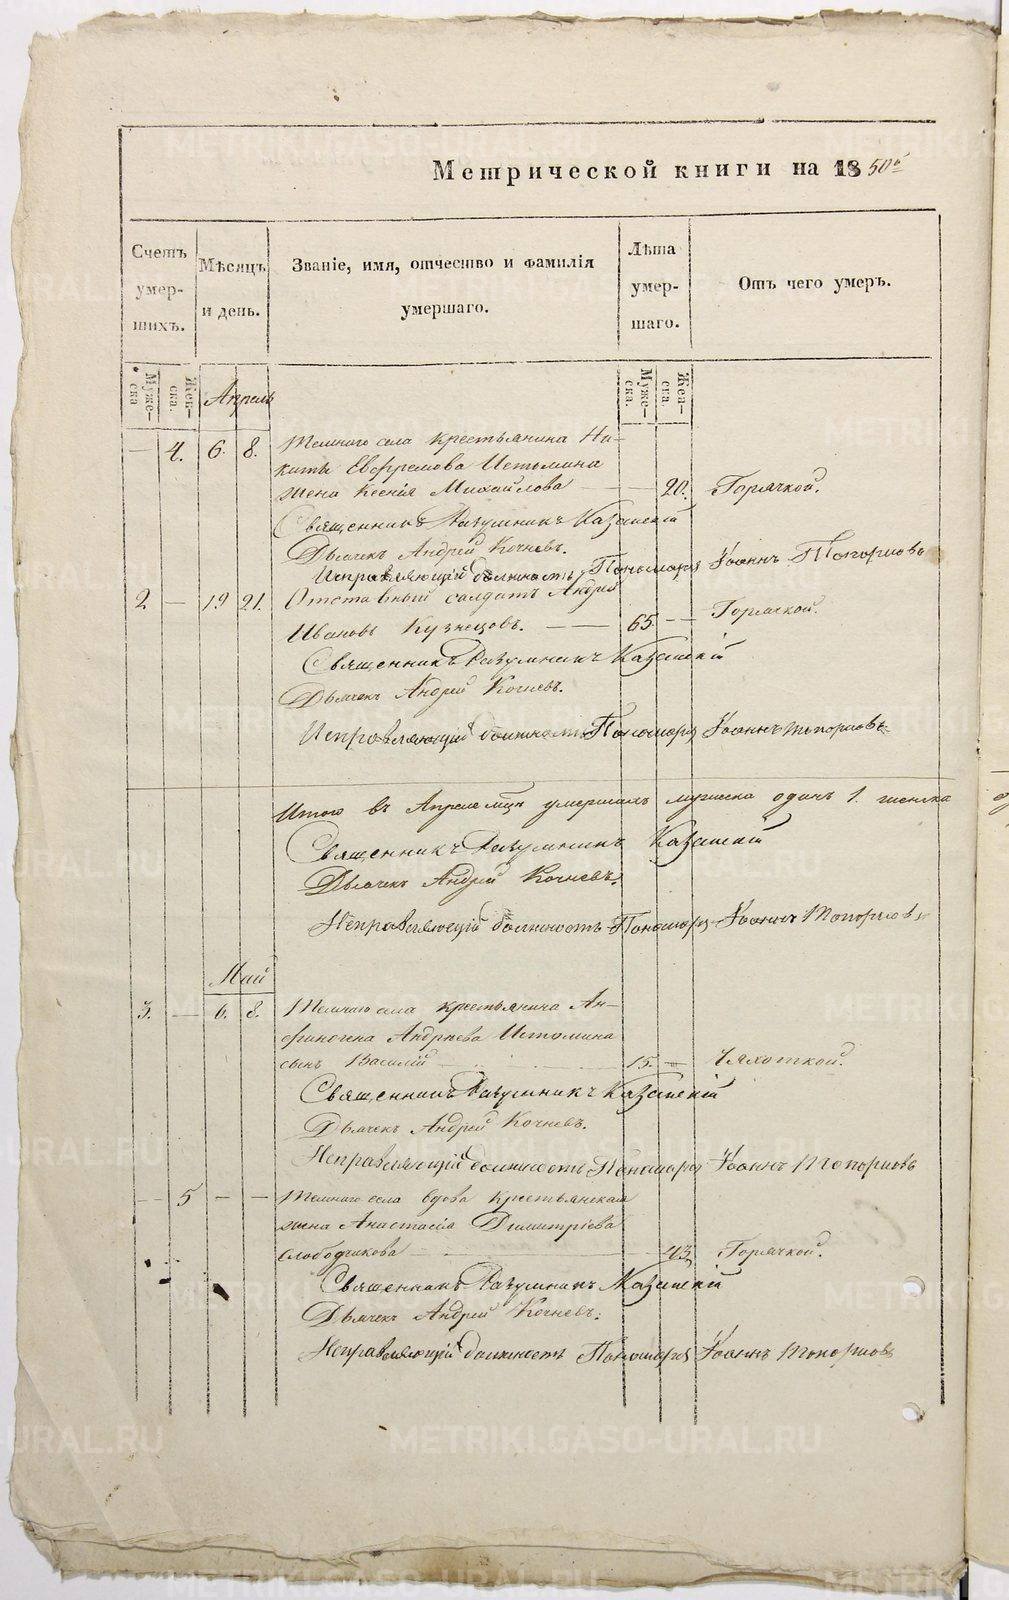 Метрической книги на 1850й
Счетъ умер-шихъ.
Мѣсяцъ и день.
Званіе, имя, отчество и фамилія умершаго.
Лѣта умер-шаго.
Отъ чего умеръ.
Муже-ска
Жен-ска.
Муже-ска.
Жен-ска.
Апрель
— 4. 6. 8. Темнаго села крестьянина Ни-
киты Евфремова Истомина
жена Ксенія Михайлова — 20. Горячкой.
Священникъ Разумникъ Казанскій
Дьячекъ Андрей Кочневъ.
Исправляющій должность Пономаря Іоаннъ Топорковъ
2 — 19 21. Отставный солдатъ Андрей
Ивановъ Кузнецовъ. — 65. — Горячкой.
Священникъ Разумникъ Казанскій
Дьячекъ Андрей Кочневъ.
Исправляющій должность Пономаря Іоаннъ Топорковъ
Итого въ Апреле умершихъ мужеска одинъ 1. женска
Священникъ Разумникъ Казанскій
Дьячекъ Андрей Кочневъ.
Исправляющій должность Пономаря Іоаннъ Топорковъ
Май
3. — 6. 8. села крестьянина Ан-
финогена Андреева Истомина
сынъ Василій — 15. — Чахоткой.
Священникъ Разумникъ Казанскій
Дьячекъ Андрей Кочневъ.
Исправляющій должность Пономаря Іоаннъ Топорковъ
— 5 — — села вдова крестьянская
жена Анастасія Димитріева
Слободчикова — 43, Горячкой.
Священникъ Разумникъ Казанскій
Дьячекъ Андрей Кочневъ.
Исправляющій должность Пономаря Іоаннъ Топорковъ
METRIKI.GASO-URAL.RU